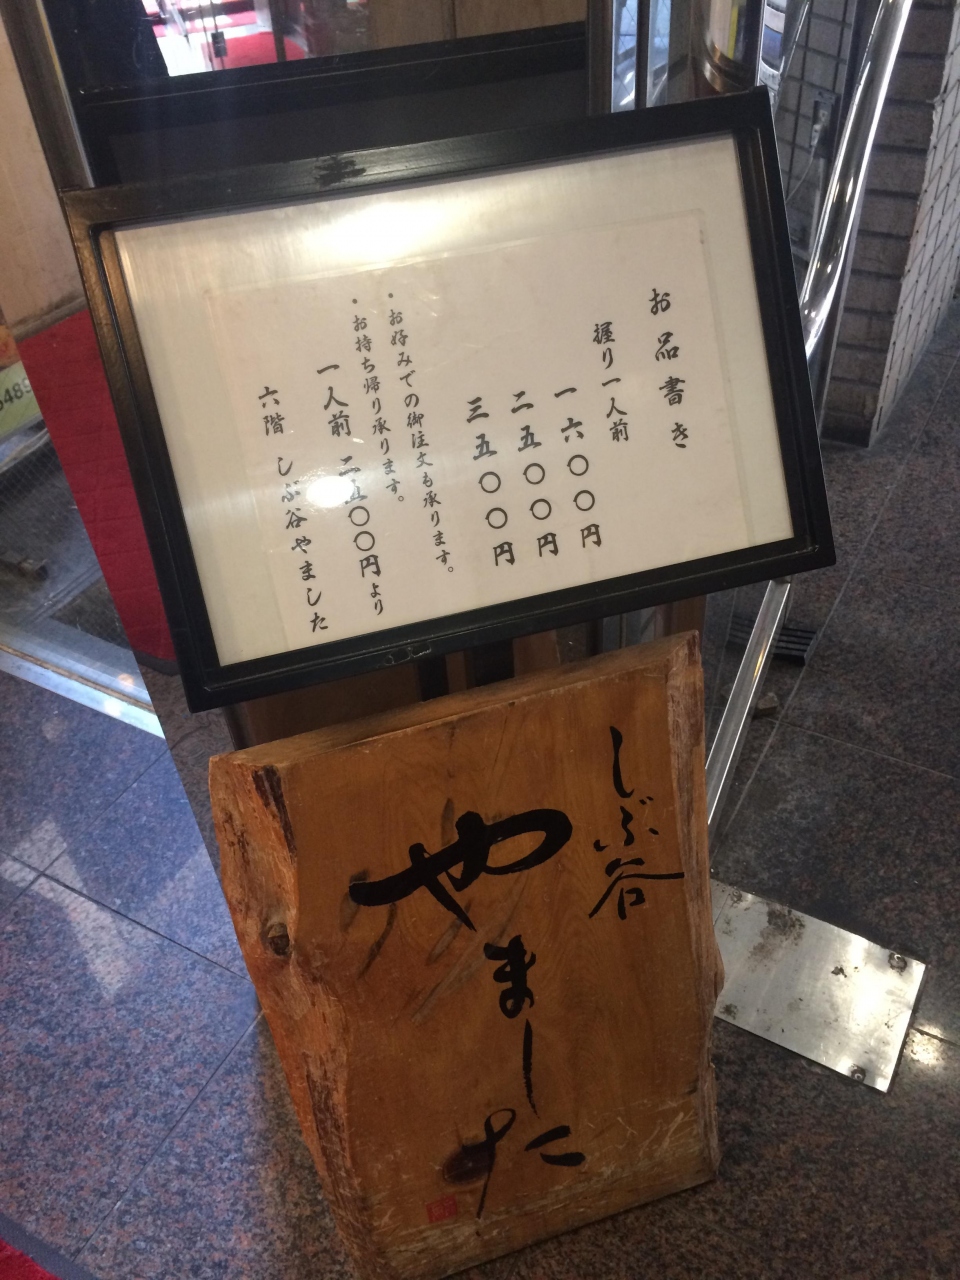 お品書き
握り一人前
一六〇〇円
二五〇〇円
三五〇〇円
・お好みでの御注文も承ります。
・お持ち帰り承ります。
一人前 二五〇〇円より
六階 しぶ谷やました
しぶ谷
やました